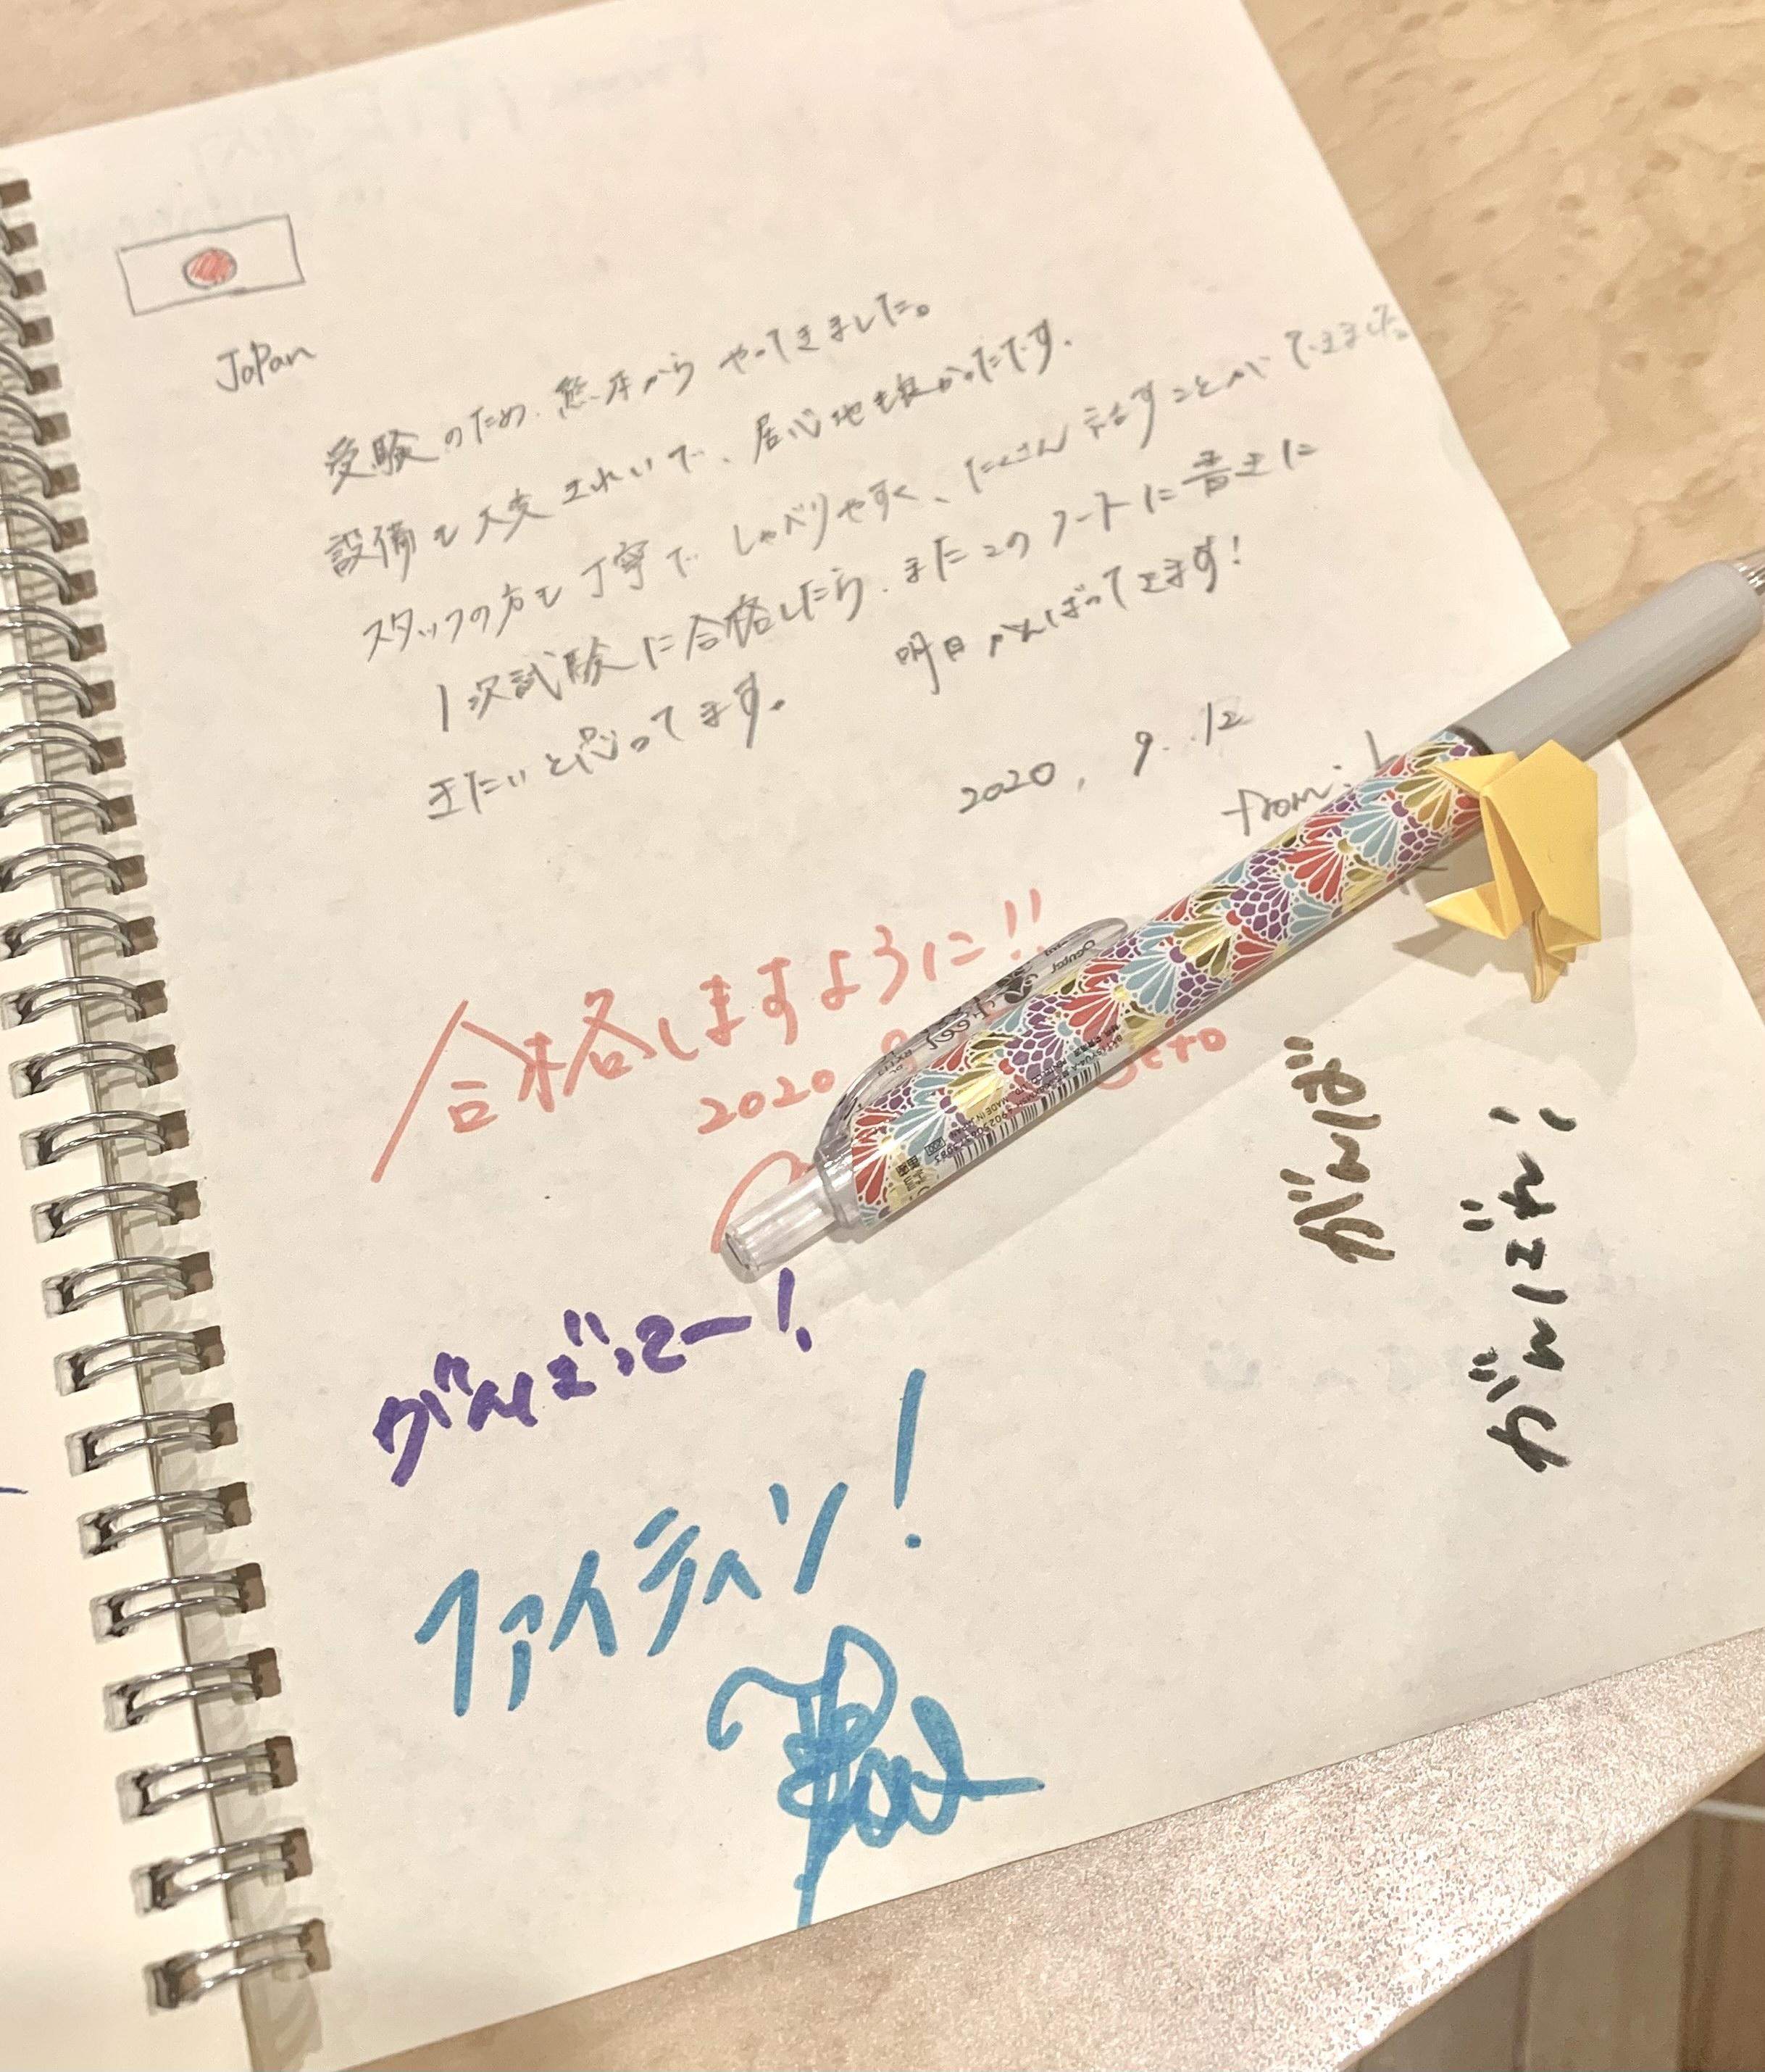 Japan
受験のため、熊本からやってきました。
設備も大変きれいで、居心地も良かったです。
スタッフの方も丁寧でしゃべりやすく、たくさん話すことができました。
1次試験に合格したら、またこのノートに書きに
きたいと思ってます。 明日がんばってきます!
2020. 9. 12
from:
合格しますように!!
2020
がんばってー!
ファイティン!
がんば
がんばれ!
Pentel
MADE IN JAPAN